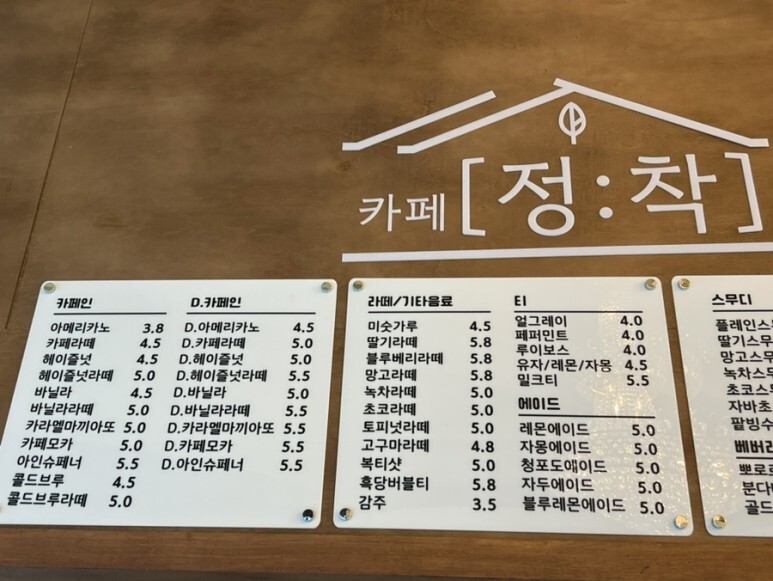 카페 [정:착]
카페인
아메리카노 3.8
카페라떼 4.5
헤이즐넛 4.5
헤이즐넛라떼 5.0
바닐라 4.5
바닐라라떼 5.0
카라멜마끼아또 5.0
카페모카 5.0
아인슈페너 5.5
콜드브루 4.5
콜드브루라떼 5.0
D.카페인
D.아메리카노 4.5
D.카페라떼 5.0
D.헤이즐넛 5.0
D.헤이즐넛라떼 5.5
D.바닐라 5.0
D.바닐라라떼 5.5
D.카라멜마끼아또 5.5
D.카페모카 5.5
D.아인슈페너 5.5
라떼/기타음료
미숫가루 4.5
딸기라떼 5.8
블루베리라떼 5.8
망고라떼 5.8
녹차라떼 5.0
초코라떼 5.0
토피넛라떼 5.0
고구마라떼 4.8
복티샷 5.0
흑당버블티 5.8
감주 3.5
티
얼그레이 4.0
페퍼민트 4.0
루이보스 4.0
유자/레몬/자몽 4.5
밀크티 5.5
에이드
레몬에이드 5.0
자몽에이드 5.0
청포도애이드 5.0
자두에이드 5.0
블루레몬에이드 5.0
스무디
플레인스
딸기스무
망고스무
녹차스무
초코스무
자바초
팥빙수
베버리
뽀로
분다
골드